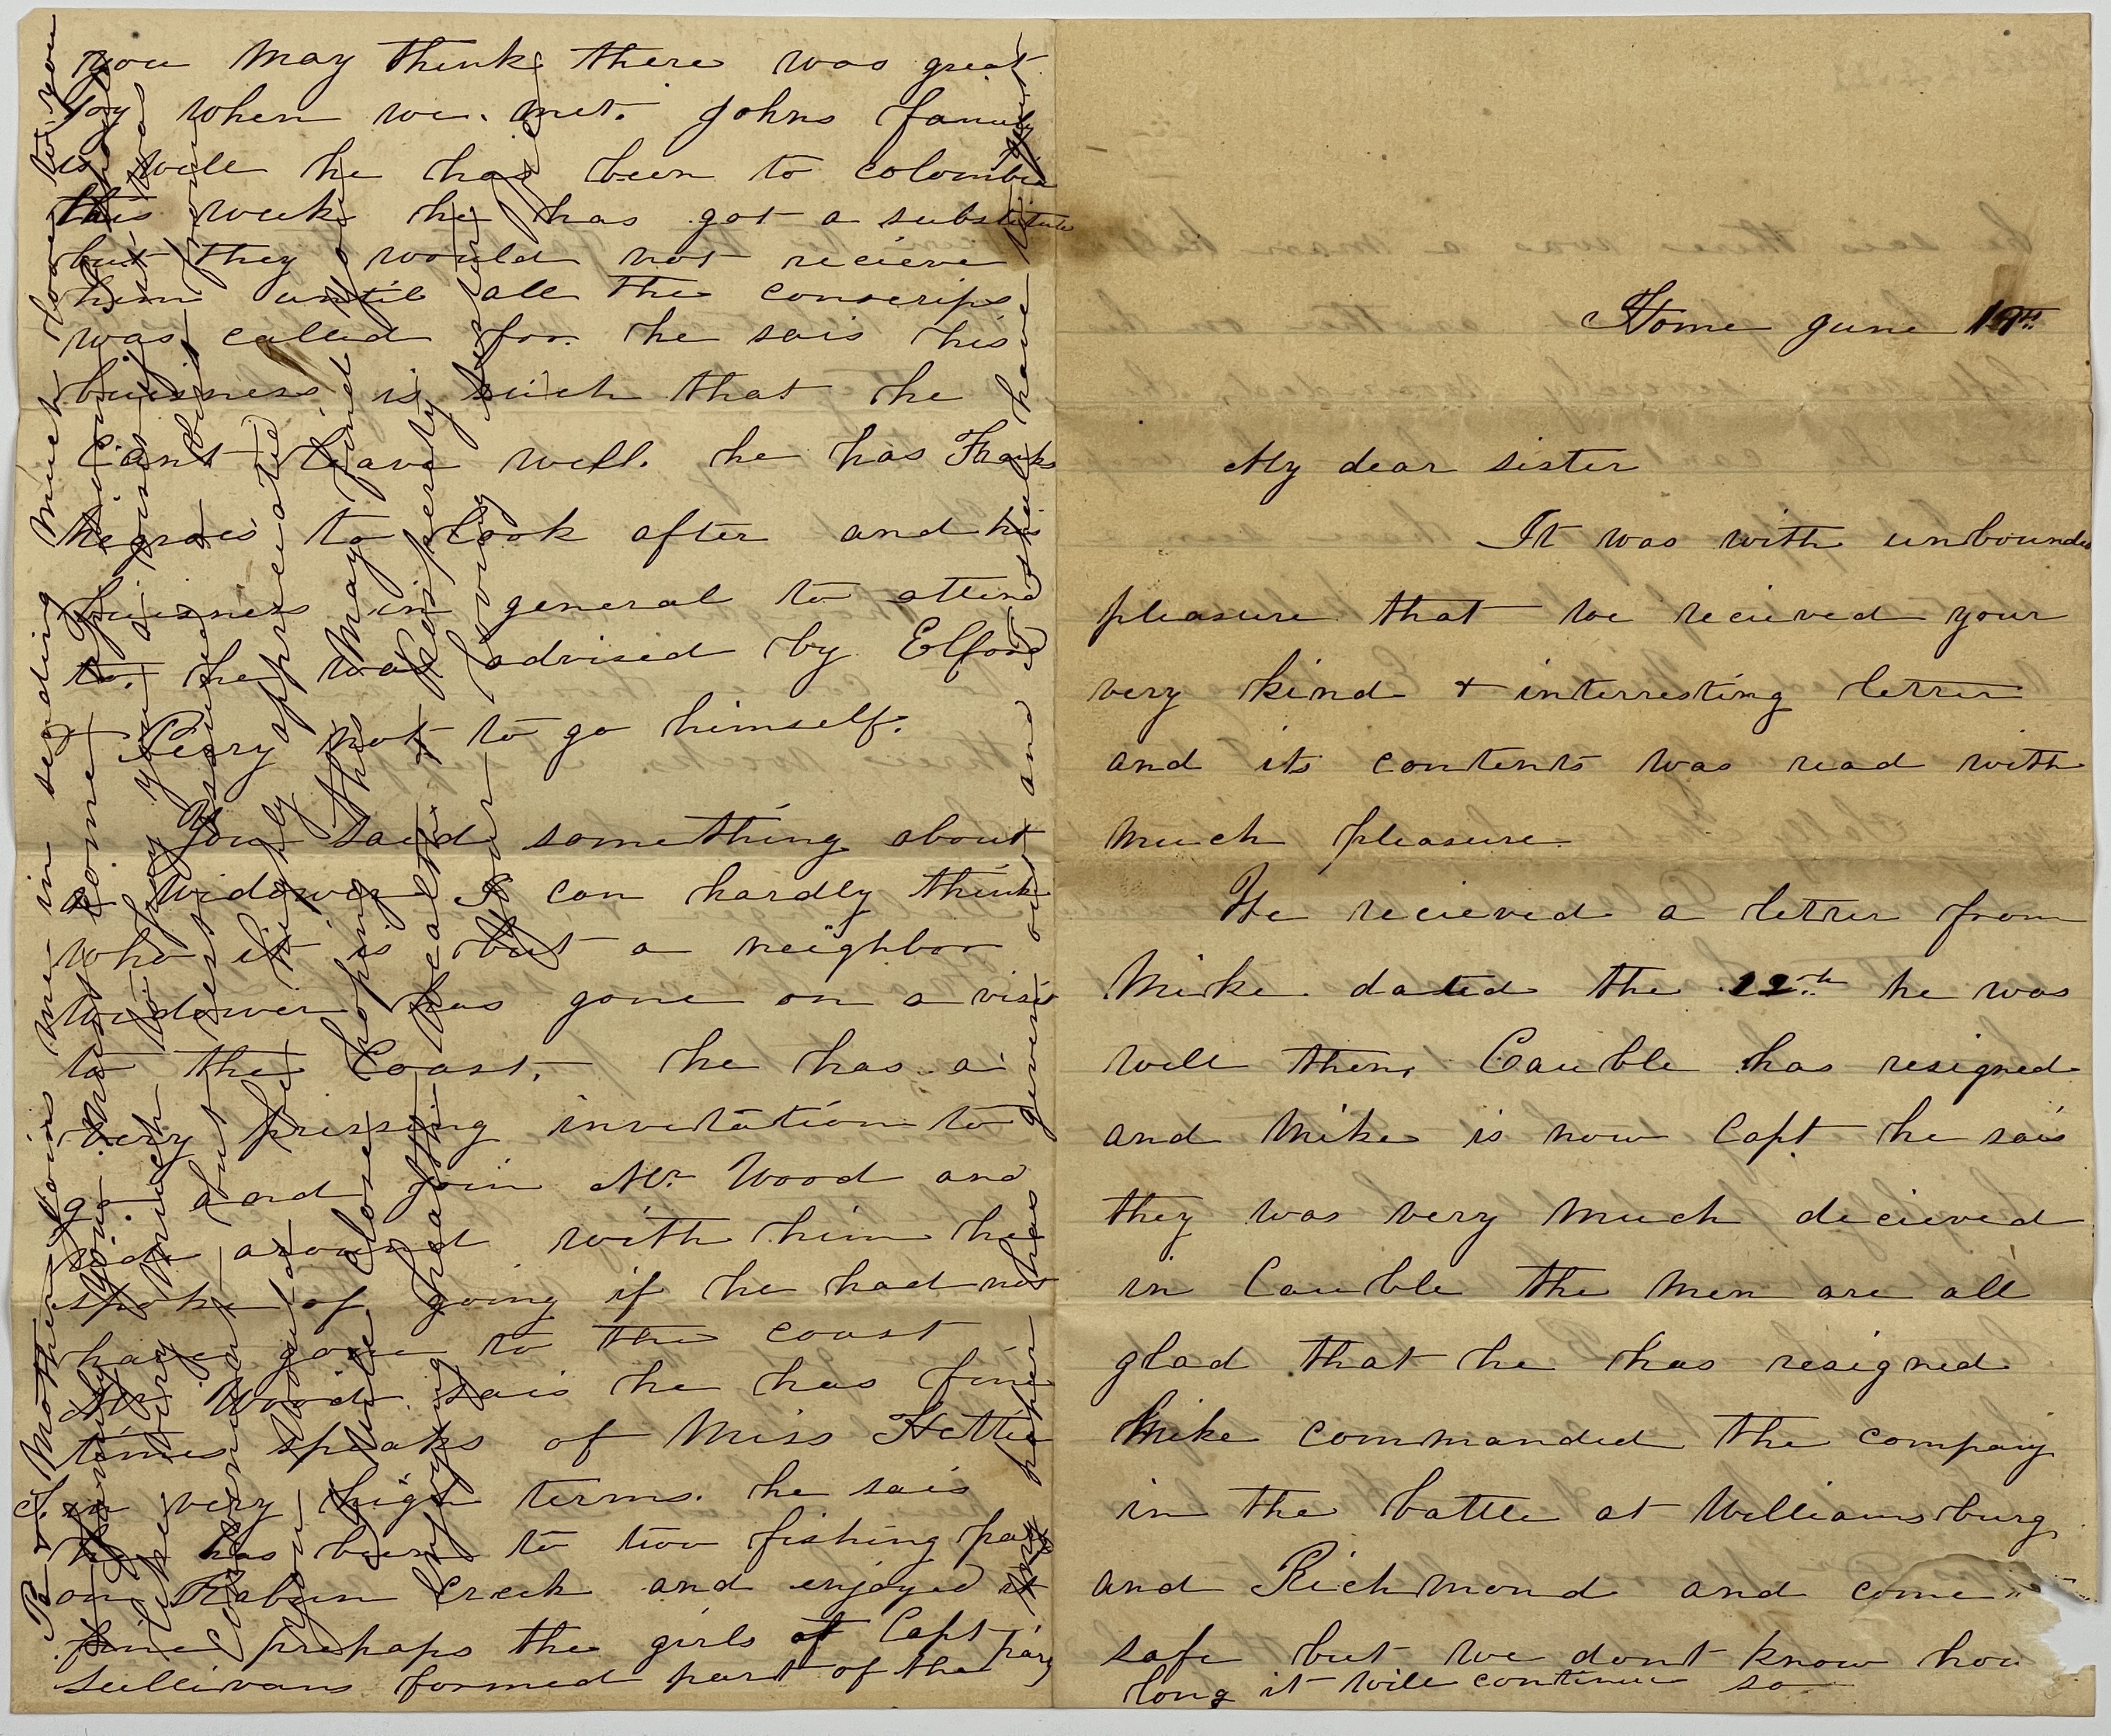 Home June 19th
My dear sister
It was with unbounded
pleasure that we recieved your
very kind & interresting letter
and its contents was read with
much pleasure
We recieved a letter from
Mike dated the 12th he was
well then, Cauble has resigned
and Mike is now Capt he sais
they was very much decieved
in Cauble the men are all
glad that he has resigned
Mike commanded the company
in the battle at Williamsburg
and Richmond and come
safe but we dont know how
long it will continue so
you may think there was great
joy when we met. Johns family
is well he has been to colombia
this week he has got a substitute
but they would not recieve
him until all the conscrips
was called for. he sais his
buisness is such that he
Cant leave well. he has Franks
negroes to look after and his
buisness in general to attend
to. he was advised by Elford
& Perry not to go himself.
You said something about
a widower I can hardly think
who it is but a neighbor
widower has gone on a visit
to the Coast. he has a
very pressing invitation to
go and join Mr. Wood and
ride around with him he
spoke of going if he had not
have gone to the coast
Mr Wood sais he has fine
times speaks of Miss Hettie
in very high terms. he sais
he has been to two fishing party
on Rabun Creek and enjoyed it
fine prehaps the girls of Capt
Sullivans formed part of the party
P.S. Mother joins me in sending much love to you
& family you must come
like very much to pay you a visit
convenient but
you would be highly appreciated
I will close hoping this may find you
enjoying health & prosperity
Your loving sister
my paper has given out and I will have to quit